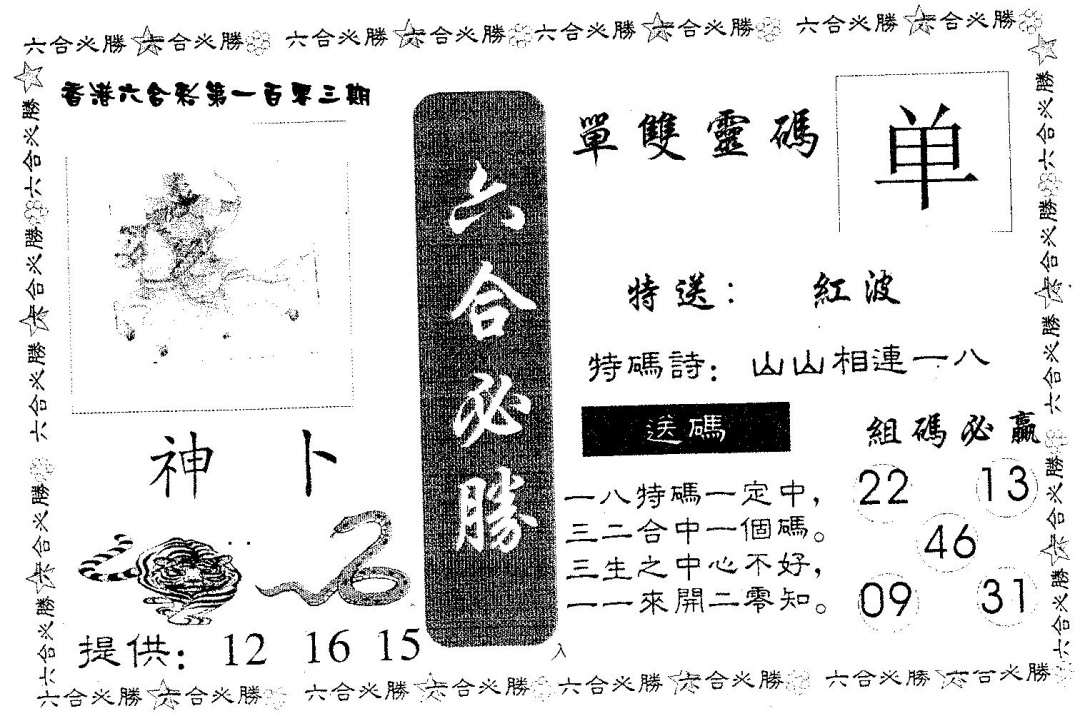 六合必勝 六合必勝 六合必勝 六合必勝 六合必勝 六合必勝 六合必勝 六合必勝
香港六合彩第一百零三期
神卜
提供: 12 16 15
六合必勝
單雙靈碼
单
特送: 紅波
特碼詩: 山山相連一八
送碼
一八特碼一定中,
三二合中一個碼。
三生之中心不好,
一一來開二零知。
組碼必贏
22 13
46
09 31
入
六合必勝 六合必勝 六合必勝 六合必勝 六合必勝
六合必勝 六合必勝 六合必勝 六合必勝 六合必勝
六合必勝 六合必勝 六合必勝 六合必勝 六合必勝 六合必勝 六合必勝 六合必勝